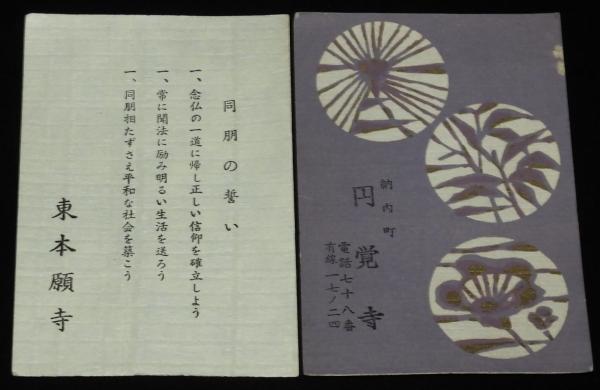 同朋の誓い
一、念仏の一道に帰し正しい信仰を確立しよう
一、常に聞法に励み明るい生活を送ろう
一、同朋相たずさえ平和な社会を築こう
東本願寺
納内町
円覚寺
電話七十八番
有線一七ノ二四